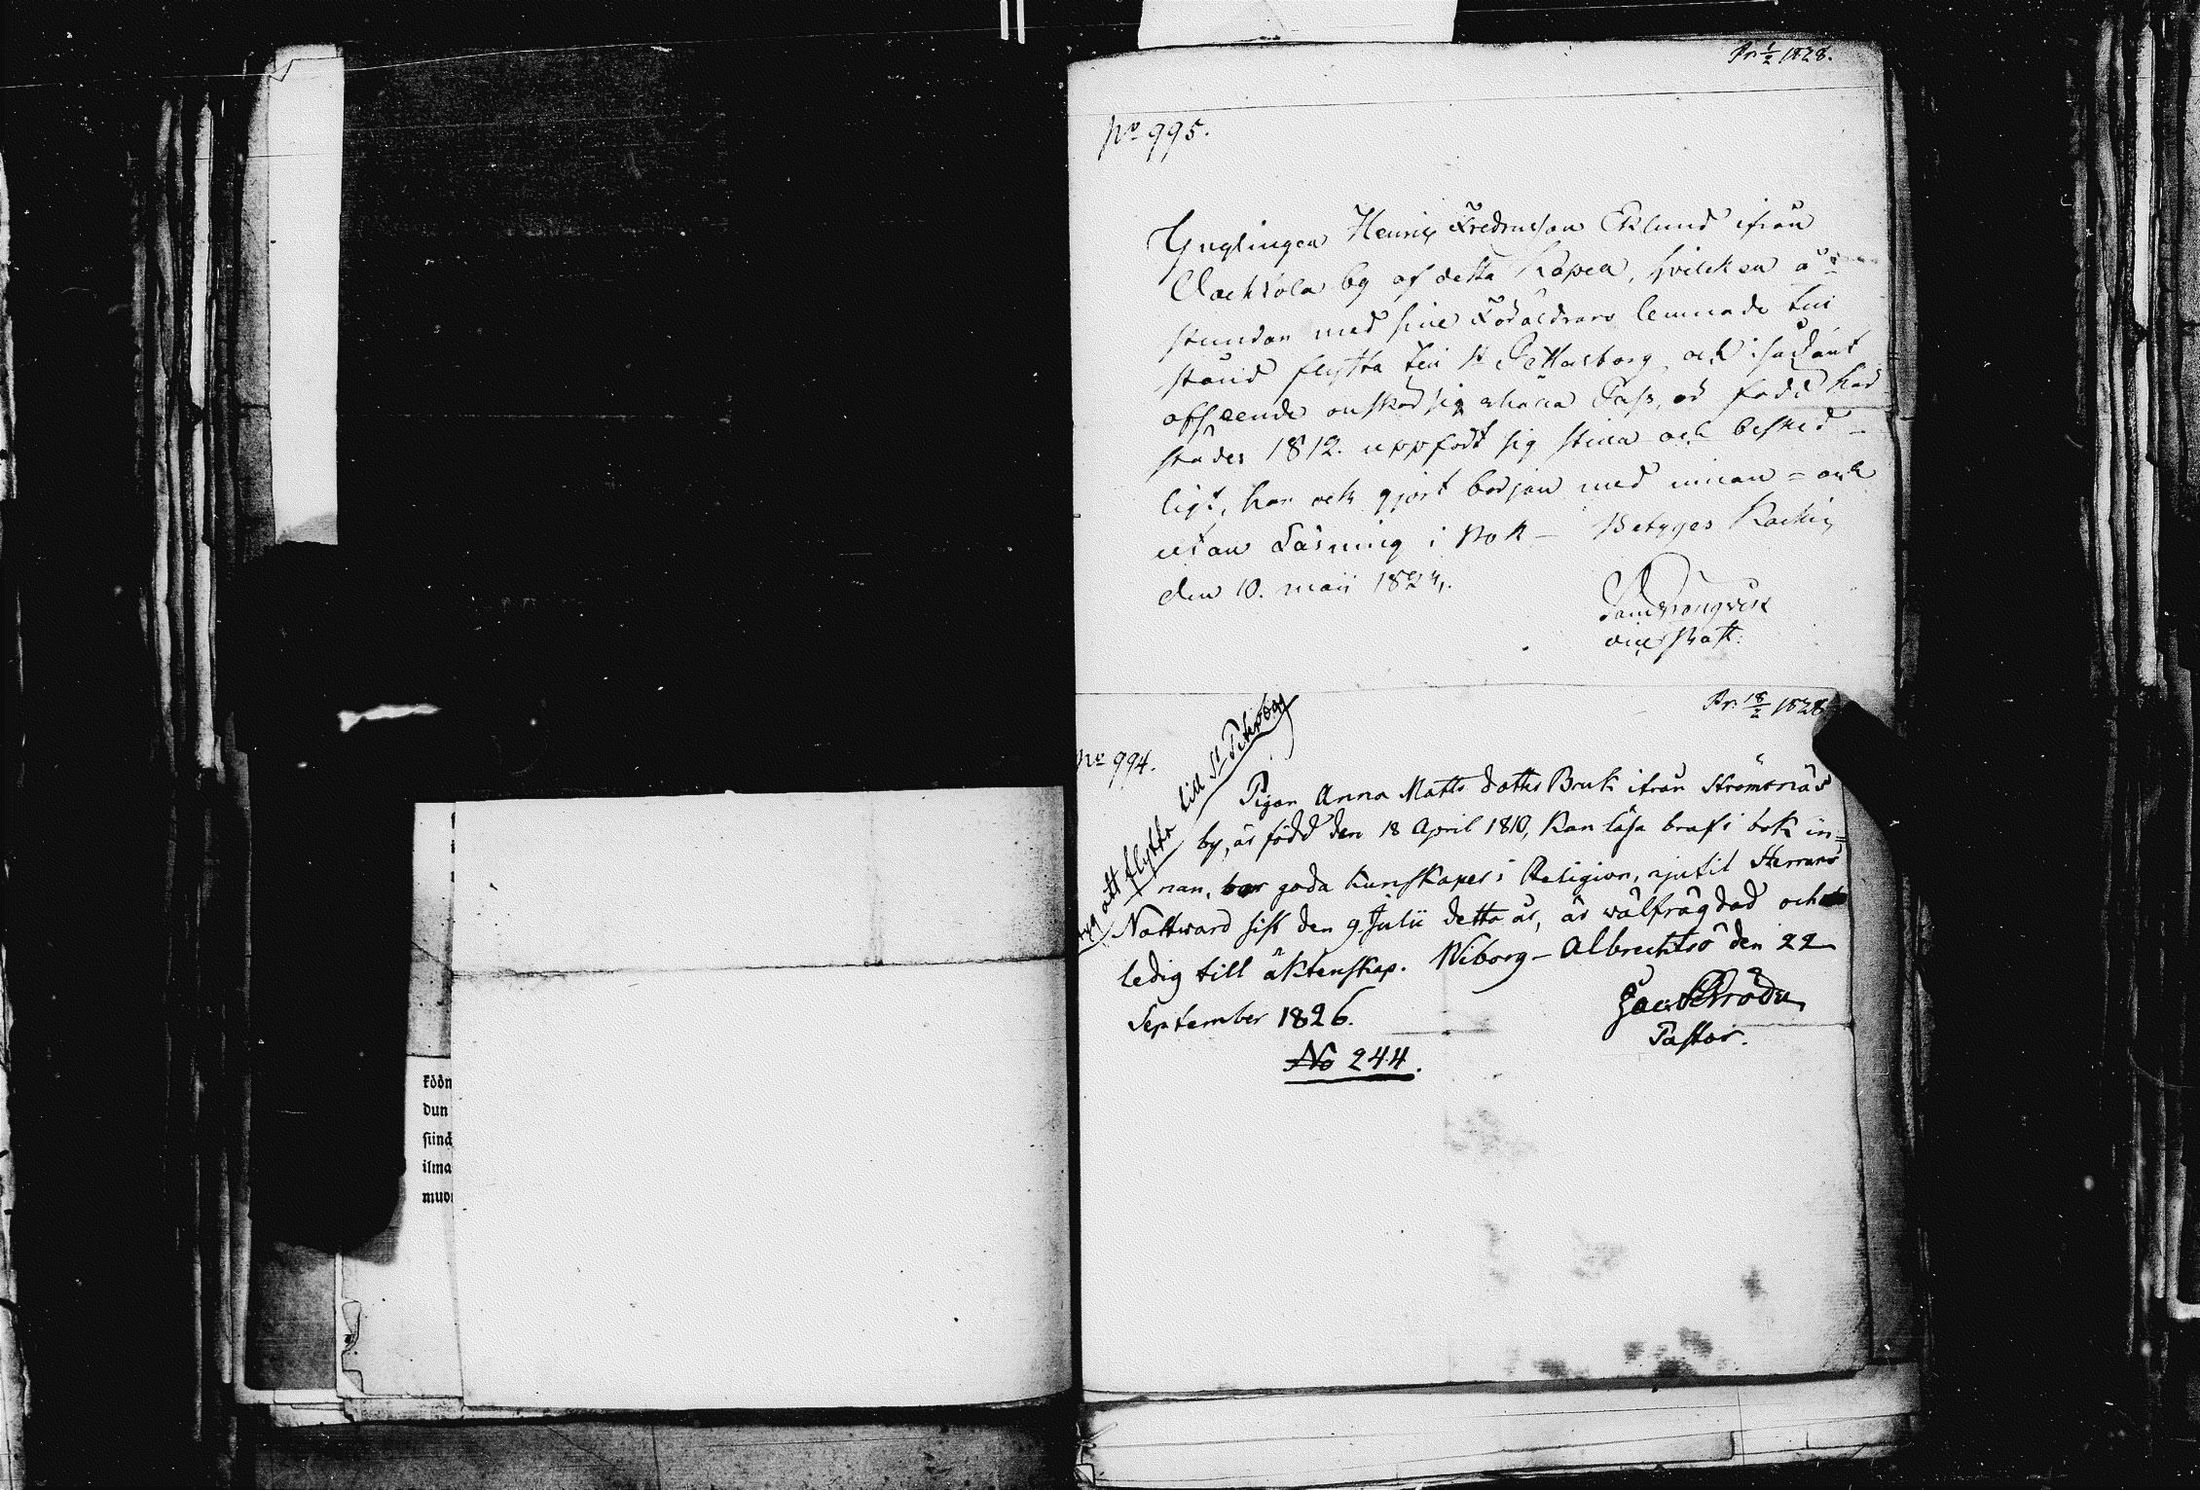 Pr. 1/2 1828.
No 995.
Ynglingen Henric Fredricsson Eklund ifrån
by af detta Capell, hvilcken å-
stundar med sine Föräldrars lemnade till
stånd flytta till St Pettersborg och i sådant
afseende önskar sig erhålla Pass, är född här
städes 1812. uppfört sig stilla och besked-
ligt, har och gjort början med innan- och
utan Läsning i Bok - Betyges
den 10. maii 1824.
Pr. 18/2 1828
No 994.
att flytta till St Petersborg
Pigan Anna Matts dotter Bruk ifrån Strömsnäs
by, är född den 18 April 1810, kan läsa braf i bok in=
nan, har goda kunskaper i Religion, njutit Herrans
Nattward sist den 9 Julii detta år, är wälfrägdad och
ledig till äktenskap. Wiborg - Albrechtsö den 22
September 1826.
Pastor.
No 244.
ködn
dun
siinä
ilma
muo